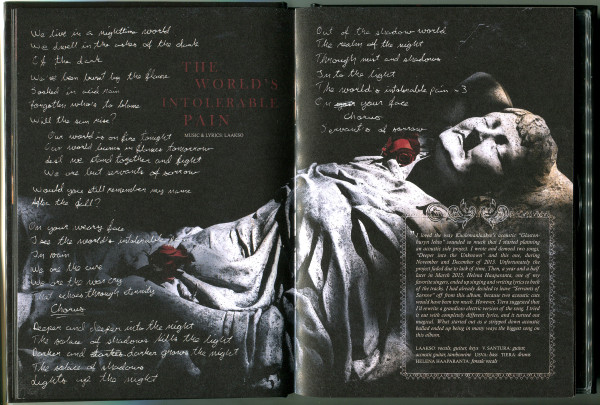 We live in a nighttime world
We dwell in the ashes of the dark
Of the dark
We've been burnt by the flame
Soaked in acid rain
forgotten who's to blame
Will the sun rise?
Our world is on fire tonight
Our world burns in flames tomorrow
shall we stand together and fight
We are but servants of sorrow
Would you still remember my name
After the fall?
On your weary face
I see the world's intolerable
pain
We are the cure
We are the war cry
that echoes through eternity
Chorus
Deeper and deeper into the night
The solace of shadows kills the light
Darker and darker grows the night
The solace of shadows
Lights up the night
THE
WORLD'S
INTOLERABLE
PAIN
MUSIC & LYRICS: LAAKSO
Out of the shadow world
The realm of the night
Through mist and shadows
Into the light
The world's intolerable pain
On your face
Chorus
Servants of sorrow
"I loved the way Kuolemanlaakso's acoustic "Glaston-
buryn lehto" sounded so much that I started planning
an acoustic side project. I wrote and demoed two songs,
"Deeper into the Unknown" and this one, during
November and December of 2013. Unfortunately the
project failed due to lack of time. Then, a year and a half
later in March 2015, Helena Haaparanta, one of my
favorite singers, ended up singing and writing lyrics to both
of the tracks. I had already decided to leave "Servants of
Sorrow" off from this album, because two acoustic cuts
would have been too much. However, Usva suggested that
I'd rewrite a grandiose electric version of the song. I tried
it out with completely different lyrics, and it turned out
magical. What started out as a stripped down acoustic
ballad ended up being in many ways the biggest song on
this album.
LAAKSO: vocals, guitars, keys V. SANTURA: guitar,
acoustic guitar, tambourine USVA: bass TIERA: drums
HELENA HAAPARANTA: female vocals